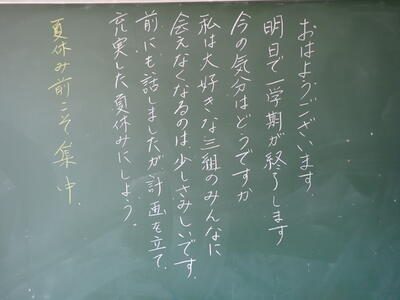 おはようございます。
明日で一学期が終了します
今の気分はどうですか
私は大好きな三組のみんなに
会えなくなるのは少しさみしいです。
前にも話しましたが、計画を立て、
充実した夏休みにしよう。
夏休み前こそ集中。